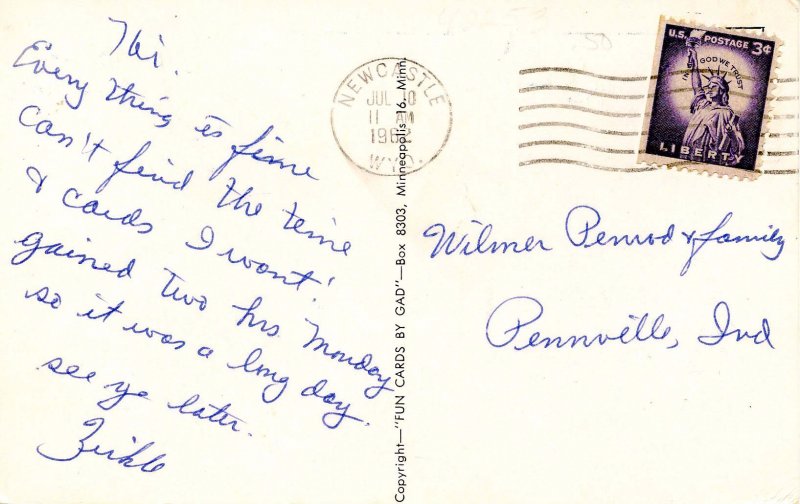 Hi.
Every thing is fine
can't find the time
& cards I want!
gained two hrs Monday
so it was a long day.
see ya later.
Zirkle
Copyright—"FUN CARDS BY GAD"—Box 8303, Minneapolis 16, Minn.
NEWCASTLE
JUL 10
11 AM
1962
WYO.
U.S. POSTAGE 3¢
IN GOD WE TRUST
LIBERTY
Wilmer Penrod & family
Pennville, Ind